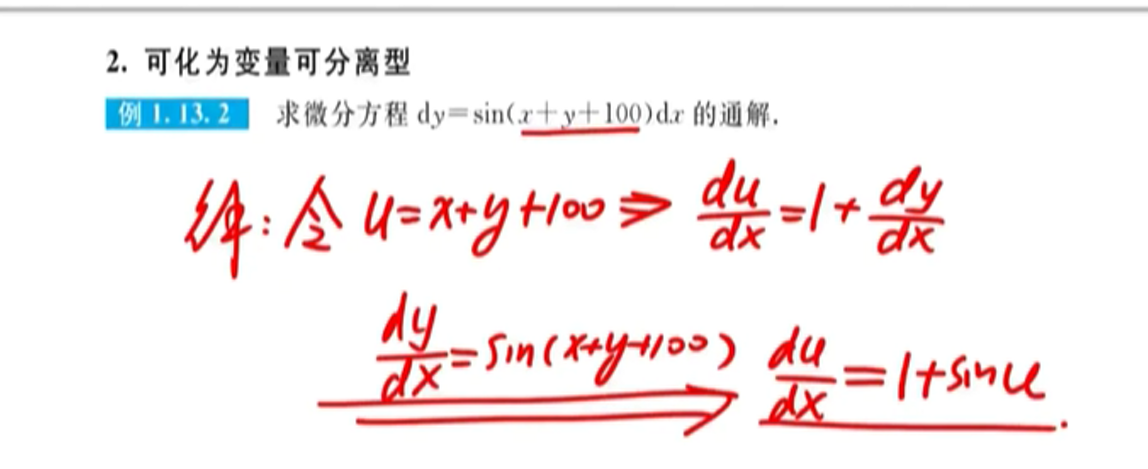 2. 可化为变量可分离型
例 1.13.2 求微分方程 dy=sin(x+y+100)dx 的通解.
解:令 u=x+y+100 ⇒ du/dx=1+dy/dx
dy/dx=sin(x+y+100) ⇒ du/dx=1+sinu.